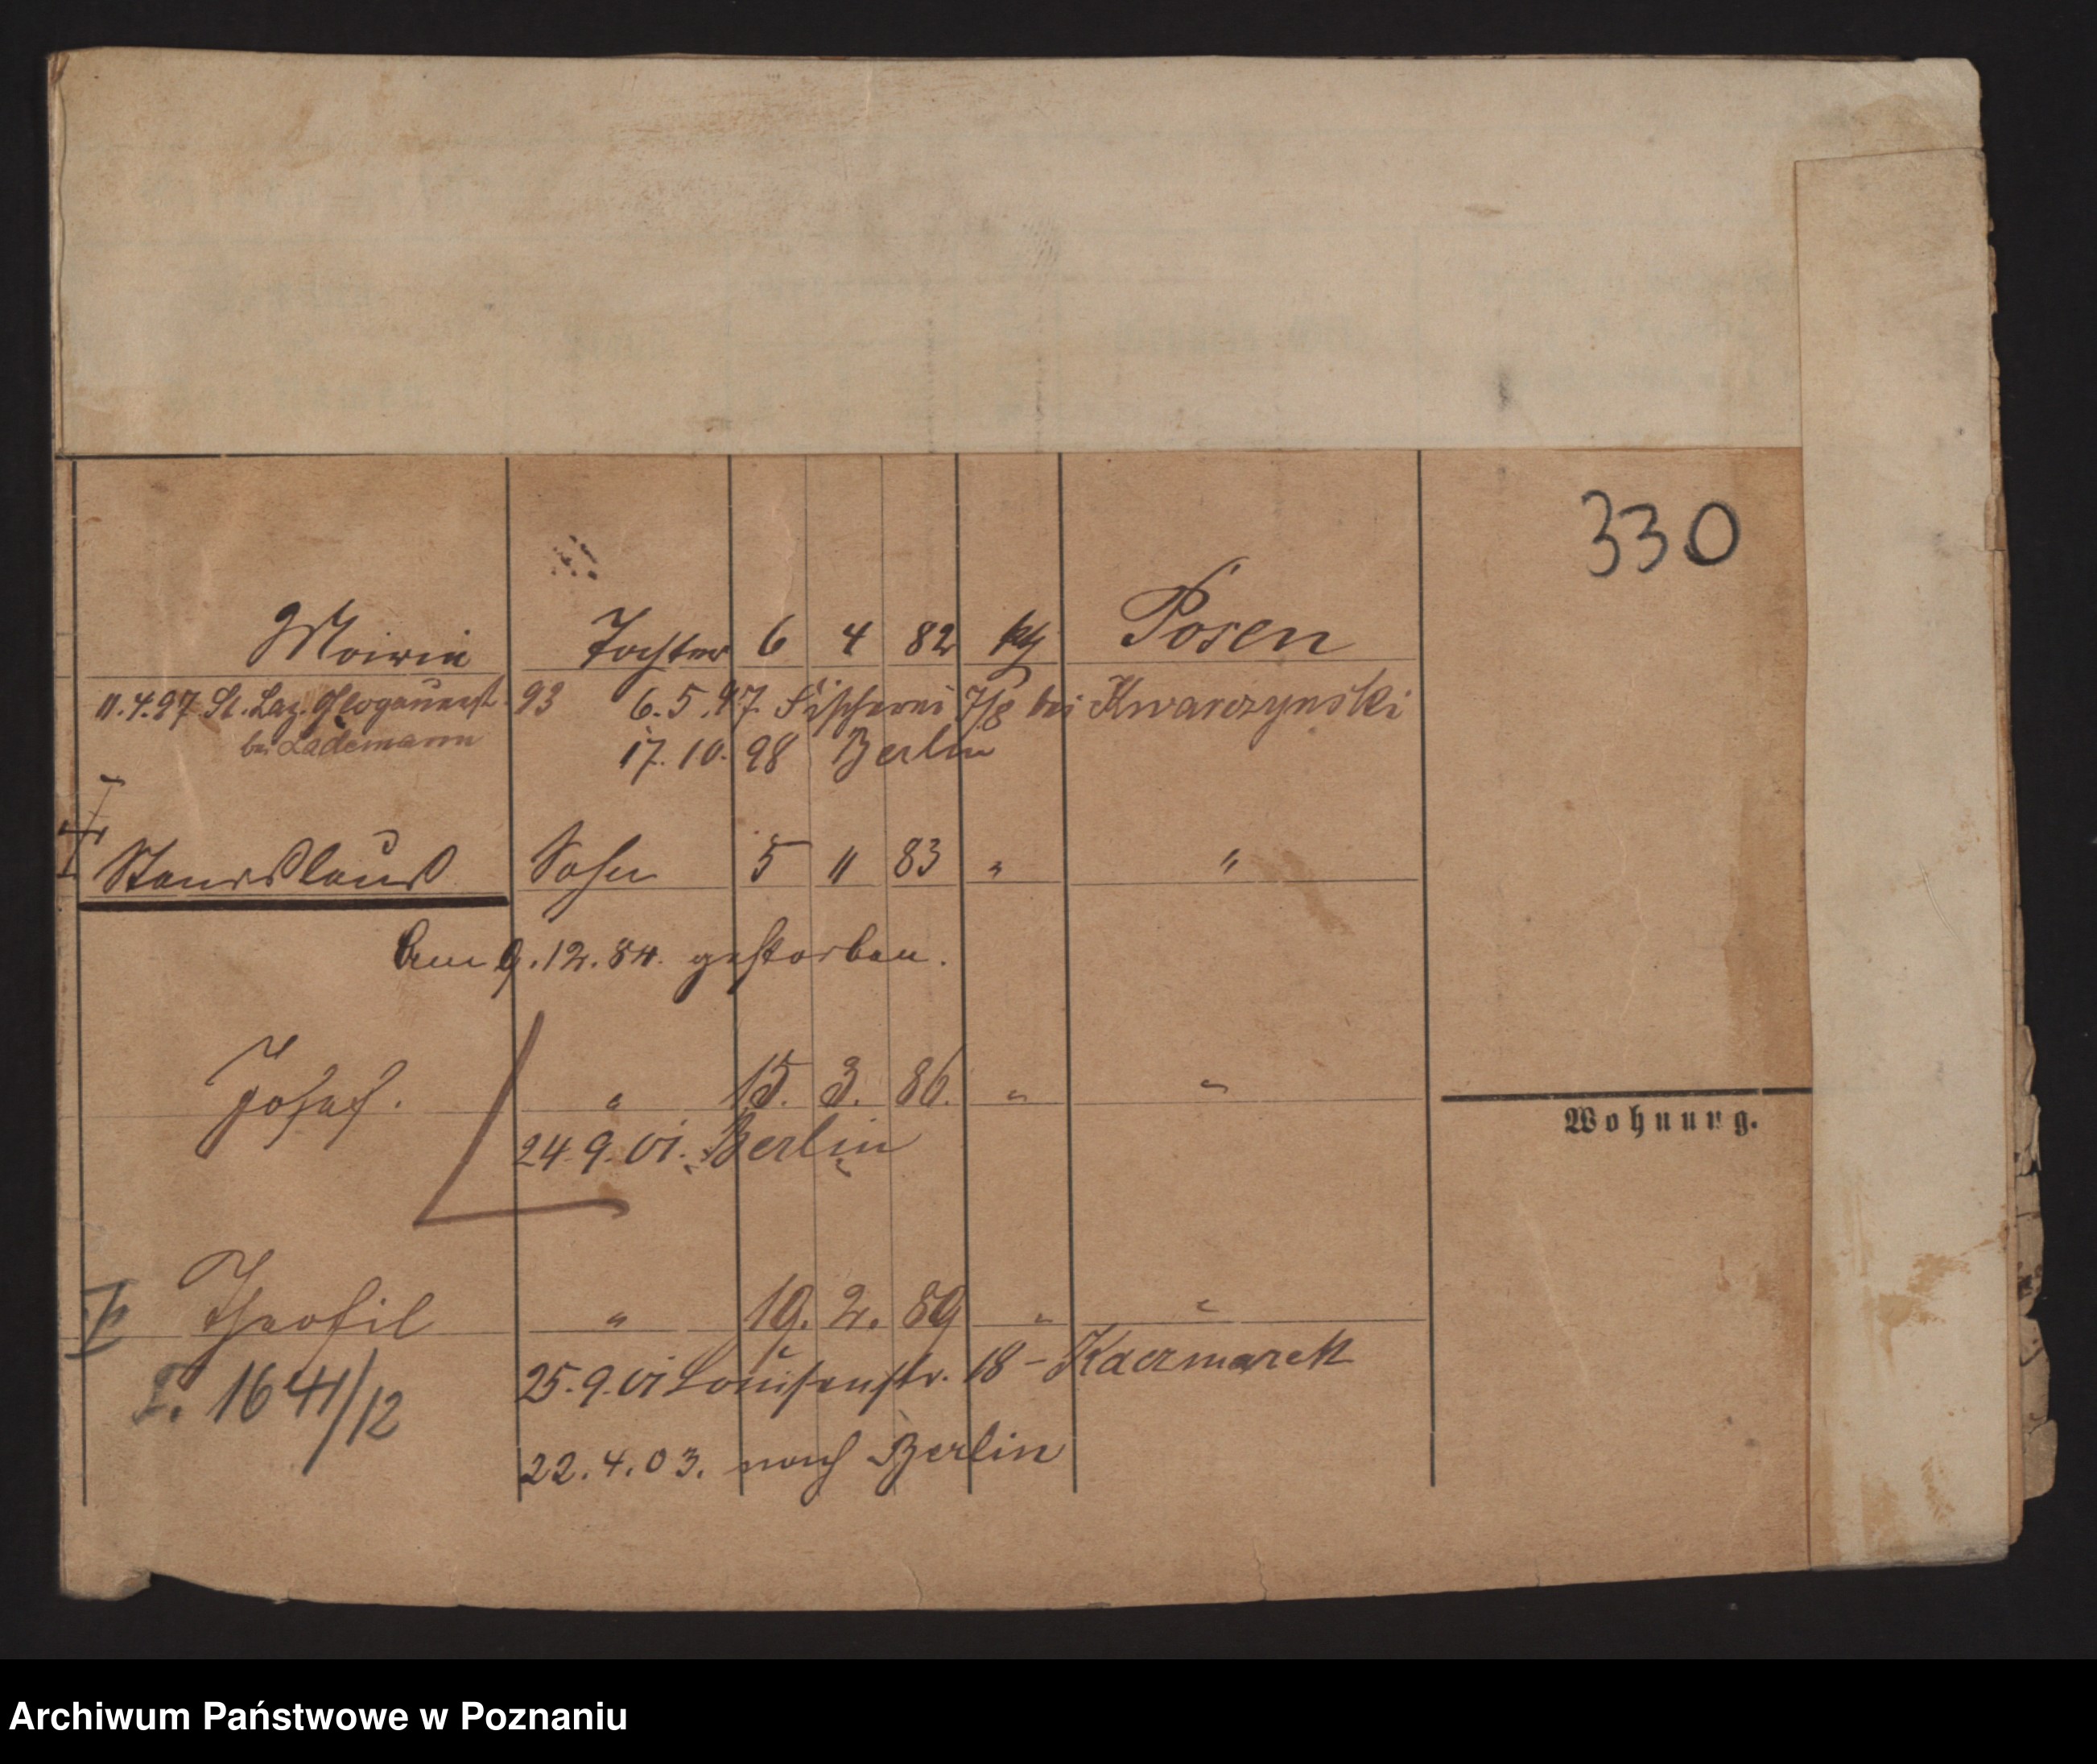 330
Maria Tochter 6 4 82 kth Posen
11.4.97 St. Laz. Glogauerst 93 6.5.97 Fischerei 7/8 bei Kwarczynski
bei Lademann 17.10.98 Berlin
Stanislaus Sohn 5 11 83 " "
Am 9.12.84. gestorben.
Josef. " 15. 3. 86. " "
24.9.01. Berlin
Wohnung.
Theofil " 19. 2. 89 " "
25.9.01 Louisenstr. 18 - Kaczmarek
I. 1641/12
22.4.03. nach Berlin
Archiwum Państwowe w Poznaniu